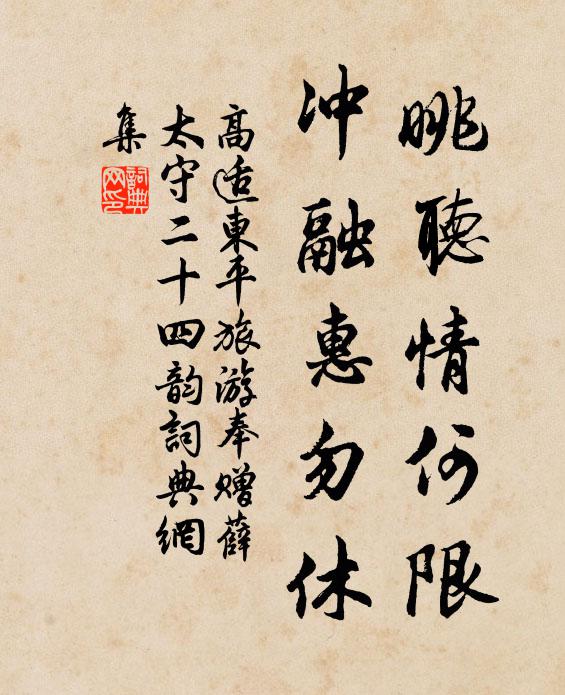 眺聽情何限
冲融惠勿休
高适東平旅游奉赠薛
太守二十四韵詞典網
集
詞典
网印